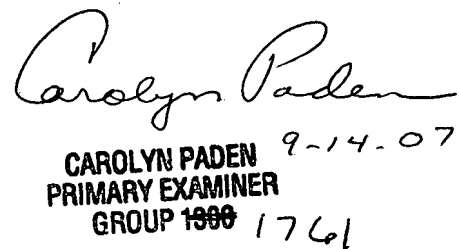 Carolyn Paden
9-14-07
CAROLYN PADEN
PRIMARY EXAMINER
GROUP 1300 1761